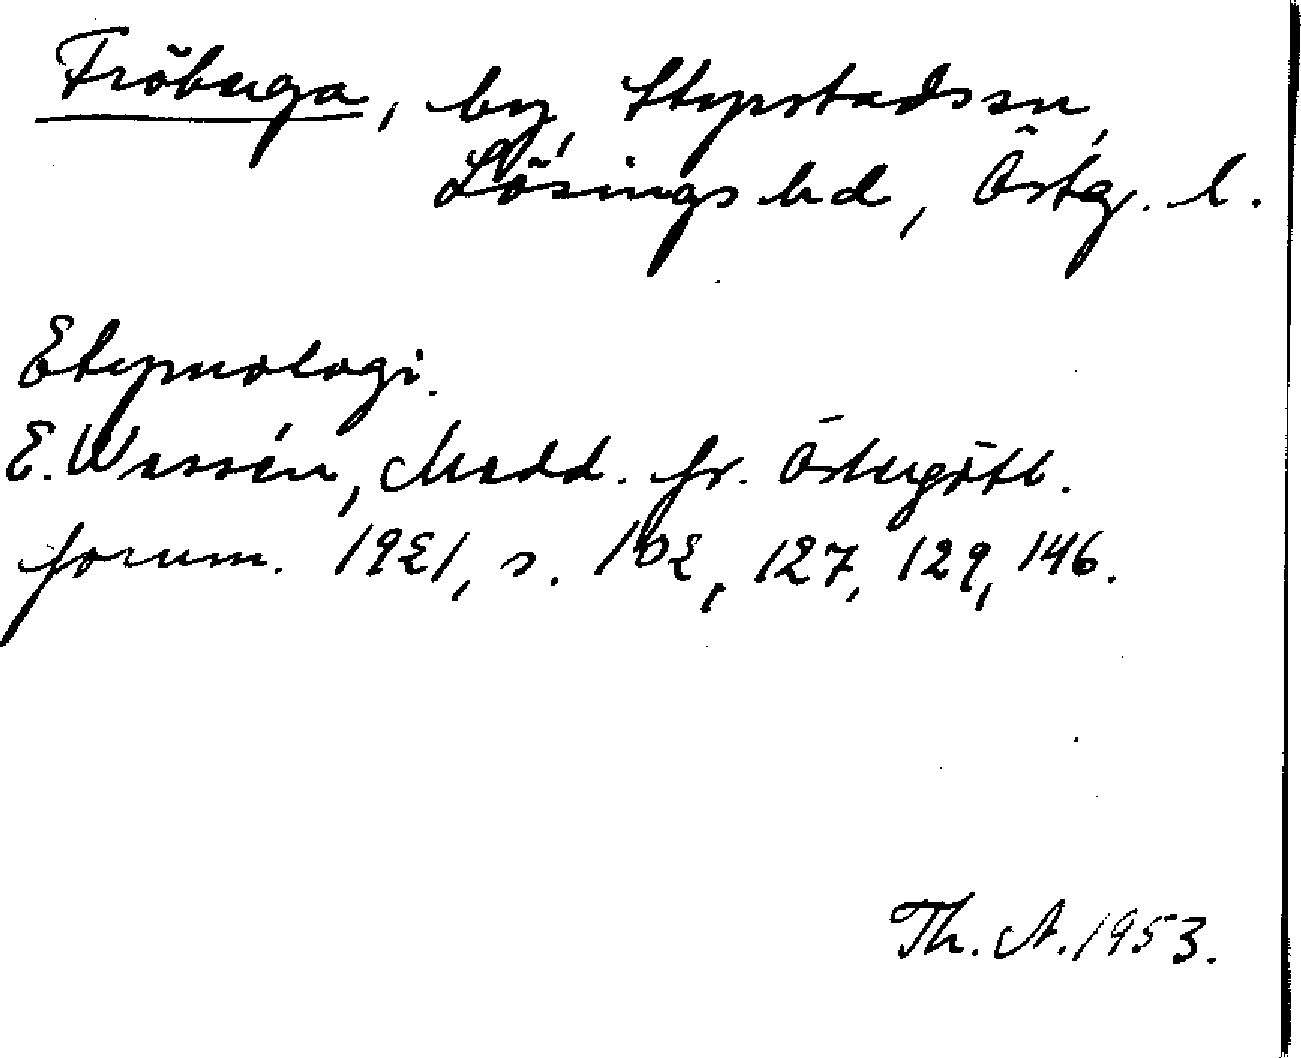 Fröberga, by, Styrstads sn,
Lösings hd, Östg. l.
Etymologi.
E. Wessén, Medd. fr. Östergötl.
fornm. 1921, s. 102, 127, 129, 146.
Th. A. 1953.